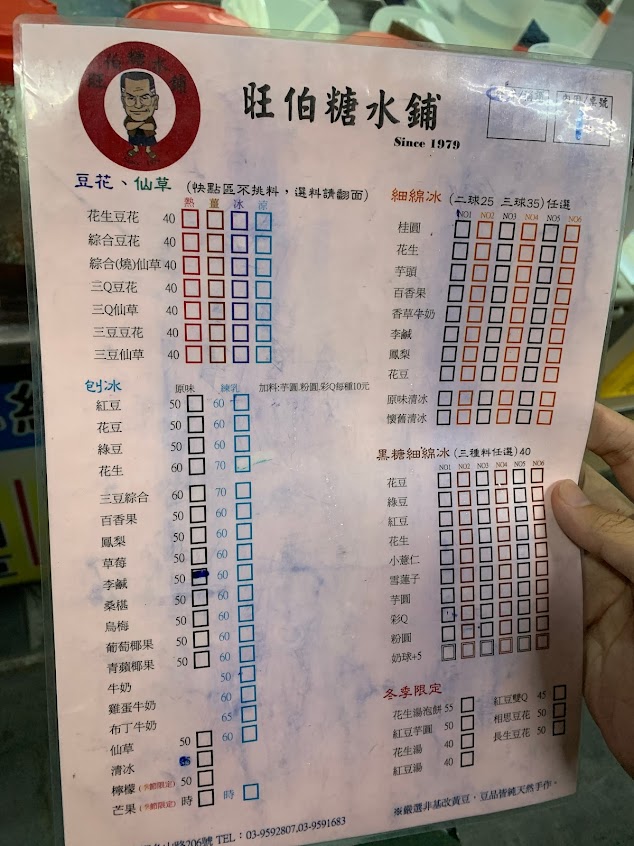 旺伯糖水舖
旺伯糖水鋪
Since 1979
內用/桌號
1
豆花、仙草 (快點區不挑料，選料請翻面)
熱 薑 冰 涼
花生豆花 40
綜合豆花 40
綜合(燒)仙草 40
三Q豆花 40
三Q仙草 40
三豆豆花 40
三豆仙草 40
刨冰 原味 煉乳 加料:芋圓.粉圓.彩Q每種10元
紅豆 50 60
花豆 50 60
綠豆 50 60
花生 60 70
三豆綜合 60 70
百香果 50 60
鳳梨 50 60
草莓 50 60
李鹹 50 60
桑椹 50 60
烏梅 50 60
葡萄椰果 50 60
青蘋椰果 50 60
牛奶 50
雞蛋牛奶 60
布丁牛奶 65
仙草 50 60
清冰
檸檬 (季節限定) 50
芒果 (季節限定) 時 時
細綿冰 (二球25 三球35)任選
NO1 NO2 NO3 NO4 NO5 NO6
桂圓
花生
芋頭
百香果
香草牛奶
李鹹
鳳梨
花豆
原味清冰
懷舊清冰
黑糖細綿冰 (三種料任選)40
NO1 NO2 NO3 NO4 NO5 NO6
花豆
綠豆
紅豆
花生
小薏仁
雪蓮子
芋圓
彩Q
粉圓
奶球+5
冬季限定
花生湯泡餅 55 紅豆雙Q 45
紅豆芋圓 50 相思豆花 50
花生湯 40 長生豆花 50
紅豆湯 40
※嚴選非基改黃豆，豆品皆純天然手作。
路206號 TEL：03-9592807,03-9591683